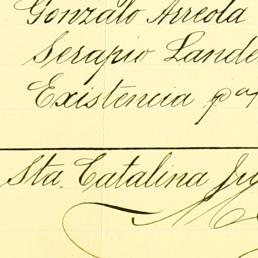 Gonzalo Arreola
Serapio Lande
Existencia pa
Sta. Catalina Ju